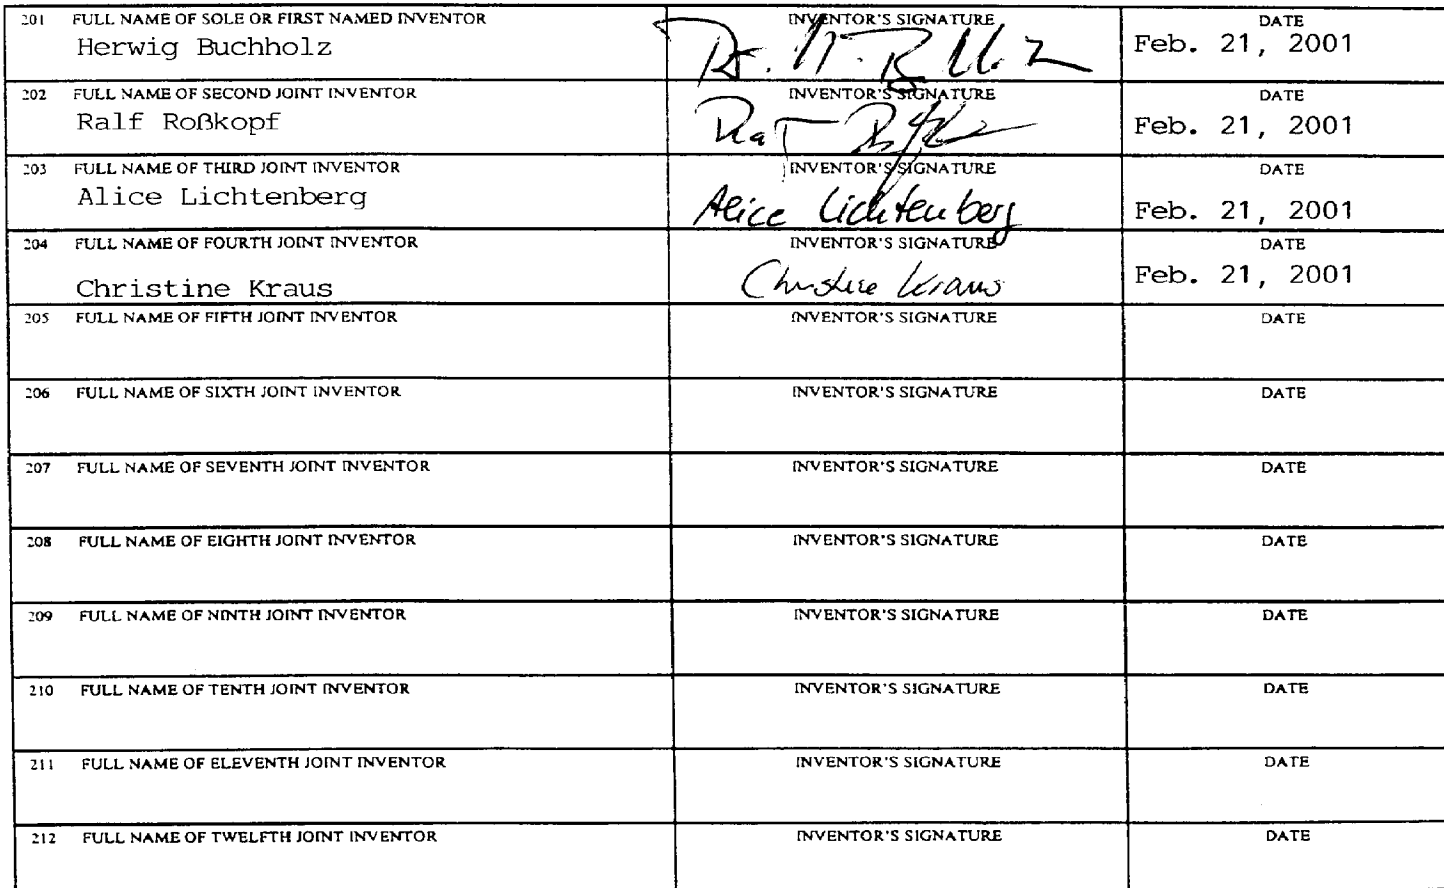 201 FULL NAME OF SOLE OR FIRST NAMED INVENTOR INVENTOR'S SIGNATURE DATE
Herwig Buchholz Dr. H. Feb. 21, 2001
202 FULL NAME OF SECOND JOINT INVENTOR INVENTOR'S SIGNATURE DATE
Ralf Roßkopf Feb. 21, 2001
203 FULL NAME OF THIRD JOINT INVENTOR INVENTOR'S SIGNATURE DATE
Alice Lichtenberg Alice Lichtenberg Feb. 21, 2001
204 FULL NAME OF FOURTH JOINT INVENTOR INVENTOR'S SIGNATURE DATE
Christine Kraus Christine Kraus Feb. 21, 2001
205 FULL NAME OF FIFTH JOINT INVENTOR INVENTOR'S SIGNATURE DATE
206 FULL NAME OF SIXTH JOINT INVENTOR INVENTOR'S SIGNATURE DATE
207 FULL NAME OF SEVENTH JOINT INVENTOR INVENTOR'S SIGNATURE DATE
208 FULL NAME OF EIGHTH JOINT INVENTOR INVENTOR'S SIGNATURE DATE
209 FULL NAME OF NINTH JOINT INVENTOR INVENTOR'S SIGNATURE DATE
210 FULL NAME OF TENTH JOINT INVENTOR INVENTOR'S SIGNATURE DATE
211 FULL NAME OF ELEVENTH JOINT INVENTOR INVENTOR'S SIGNATURE DATE
212 FULL NAME OF TWELFTH JOINT INVENTOR INVENTOR'S SIGNATURE DATE